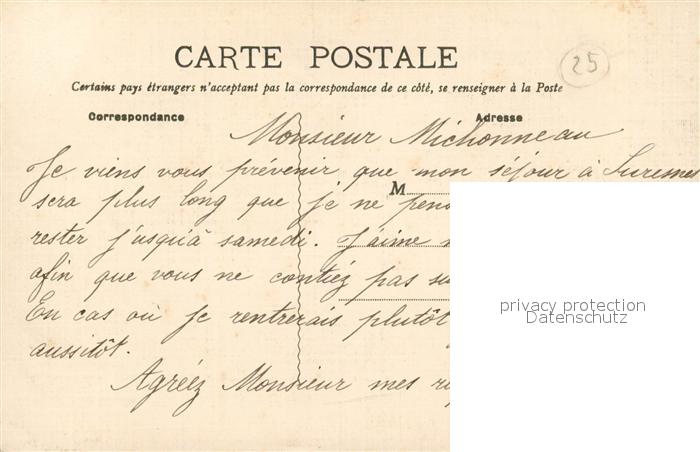 CARTE POSTALE
25
Certains pays étrangers n'acceptant pas la correspondance de ce côté, se renseigner à la Poste
Correspondance Adresse
Monsieur Michonneau
Je viens vous prévenir que mon séjour à Suresnes
M
sera plus long que je ne
rester j'usqu'à samedi. J'aime
afin que vous ne contiez pas
En cas où je rentrerais plutôt
aussitôt.
Agréez Monsieur mes
privacy protection
Datenschutz